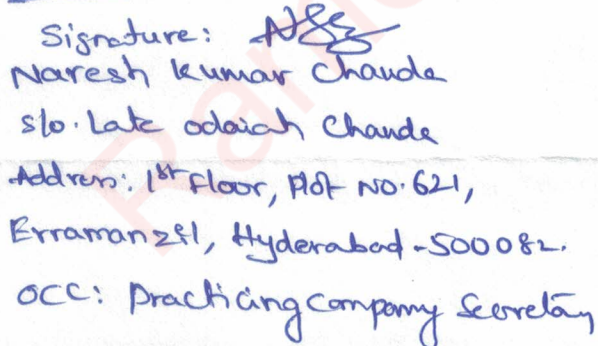 Signature:
Naresh Kumar Chanda
s/o. Late Odaiah Chanda
Address: 1st Floor, Plot No. 621,
Erramanzil, Hyderabad - 500082.
OCC: Practicing Company Secretary